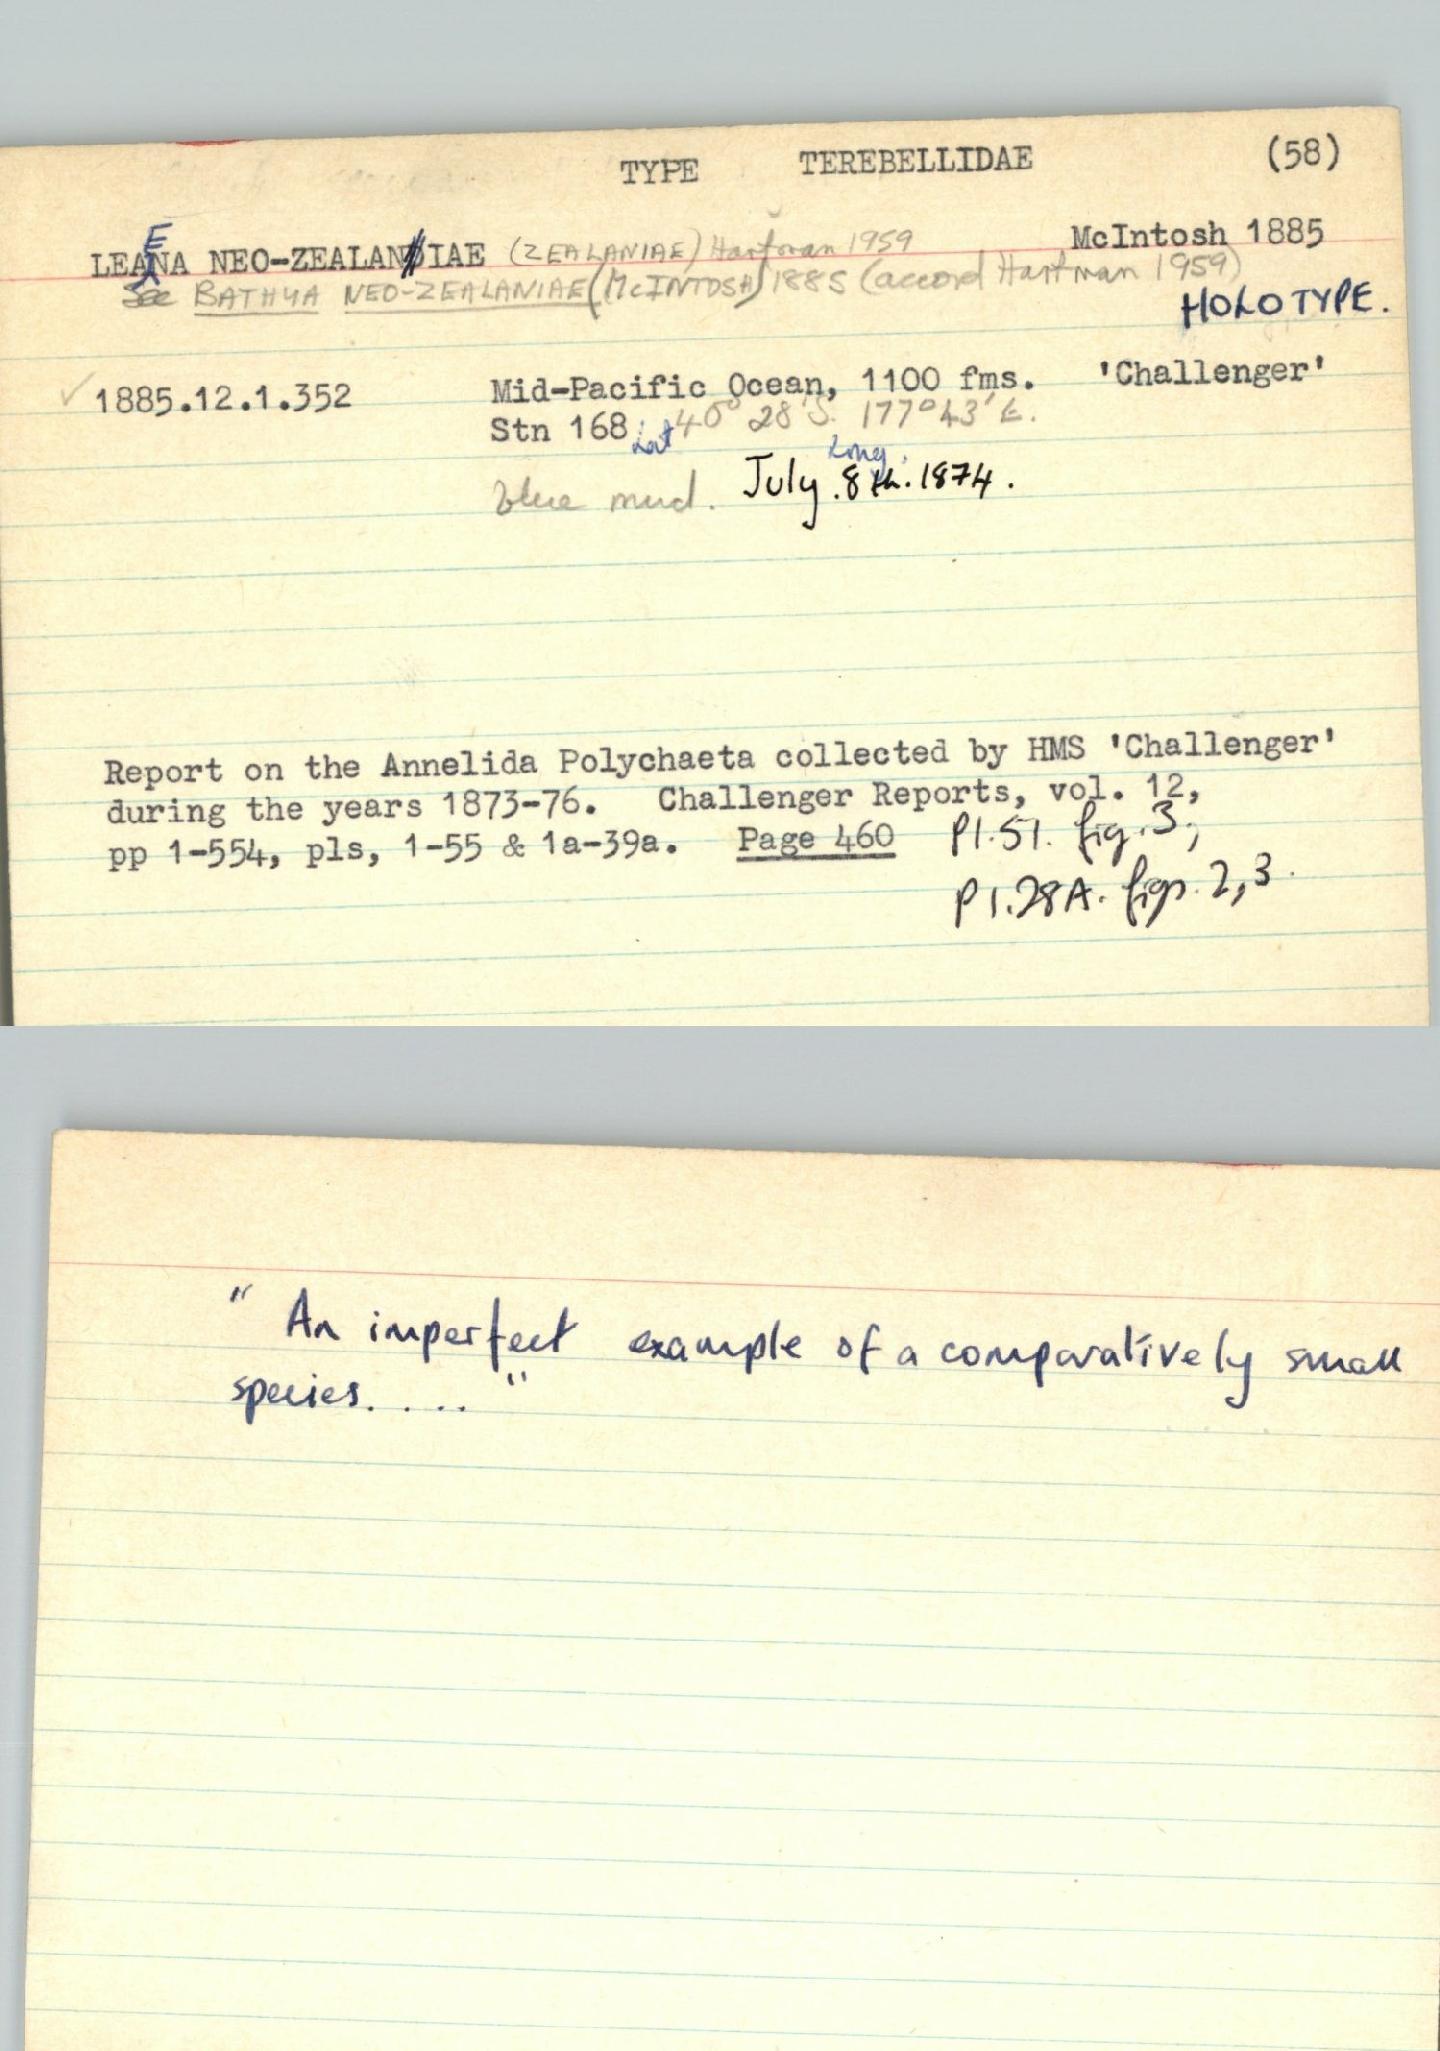 TYPE TEREBELLIDAE (58)
LEAENA NEO-ZEALANIAE (ZEALANIAE) Hartman 1959 McIntosh 1885
See BATHYA NEO-ZEALANIAE (McINTOSH) 1885 (accord Hartman 1959)
HOLOTYPE.
1885.12.1.352 Mid-Pacific Ocean, 1100 fms. 'Challenger'
Stn 168 Lat 40° 28'S. Long. 177°43'E.
blue mud. July.8th.1874.
Report on the Annelida Polychaeta collected by HMS 'Challenger'
during the years 1873-76. Challenger Reports, vol. 12,
pp 1-554, pls, 1-55 & 1a-39a. Page 460 Pl.51. fig.3;
Pl.28A. figs.2,3.
" An imperfect example of a comparatively small
species. . . . "